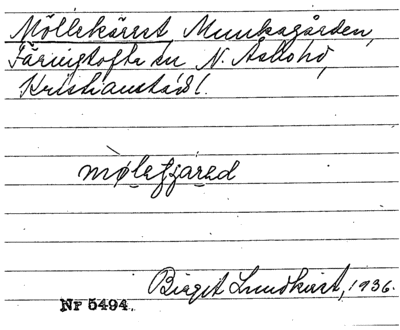 Möllekärret, Munkagården,
Färingtofta sn N. Åsbohd,
Kristianstads l.
mølefjared
Birgit Lundkvist, 1936.
Nr 5494.